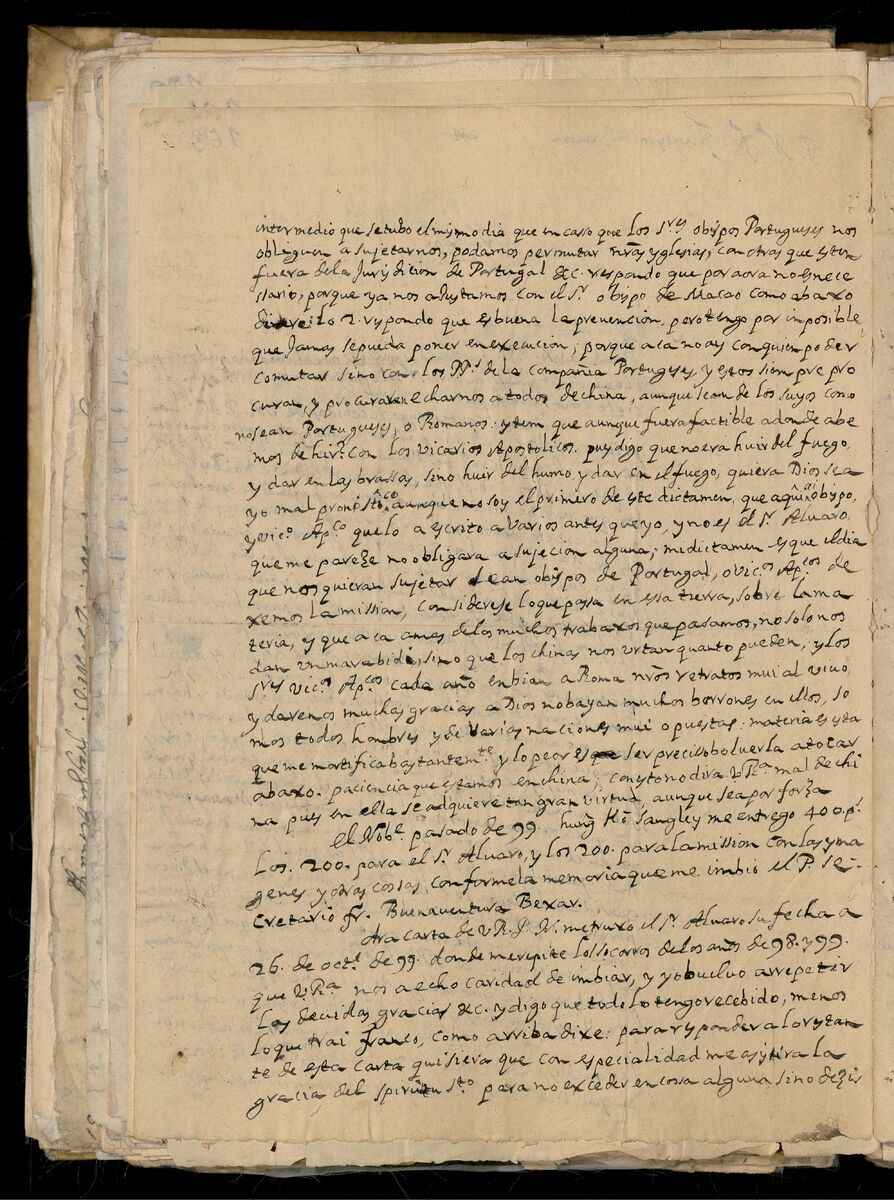 intermedio que se tubo el mismo dia que en casso que los S.res obispos Portugueses nos
obliguen a sujetarnos, podamos permutar nr̃as yglesias, con otras que esten
fuera de la Jurisdicion de Portugal &c. respondo que por aora no es nece
ssario, porque ya nos ajustamos con el S.r obispo de Macao como abaxo
dire: lo 2. respondo que es buena la prevencion, pero tengo por imposible
que Jamas se pueda poner en execucion, porque aca no ay con quien poder
comutar sino con los PP.s de la compañia Portugueses, y estos siempre pro
curan, y procuraran echarnos a todos de china, aunque sean de los suyos como
no sean Portugueses, o Romanos. ytem que aunque fuera factible adonde abe
mos de hir? con los vicarios Apostolicos. pues digo que no era huir del fuego,
y dar en las brassas, sino huir del humo, y dar en el fuego, quiera Dios sea
yo mal pronostico aunque no soy el primero de este dictamen, que aqui ai obispo,
y vic.o Ap.co que lo a escrito a varios antes que yo, y no es el S.r Alvaro,
que me pareze no obligara a sujecion alguna; mi dictamen es que el dia
que nos quieran sujetar sean obispos de Portugal, o vic.os Ap.cos de
xemos la mission, considerese lo que passa en essa tierra, sobre la ma
teria, y que aca amas de los muchos trabaxos que pasamos, no solo nos
dan un marabidi, sino que los chinas nos urtan quanto pueden, y los
S.res vic.os Ap.cos cada año enbian a Roma nr̃os retratos mui al vivo,
y daremos muchas gracias a Dios no bayan muchos borrones en ellos, so
mos todos hombres y de varias naciones mui opuestas: materia es esta
que me mortifica bastantem.te y lo peor es ser preciso boluerla a tocar
abaxo. paciencia que estamos en china; con esto no dira V. R.a mal de chi
na pues en ella se adquiere tan gran virtud, aunque sea por forza
el Nob.e pasado de 99. hung Ko sangley me entrego 400. p.s
Los. 200. para el S.r Alvaro, y los 200. para la mission con las yma
genes y otras cossas, conforme la memoria que me imbio el P. Se-
cretario fr. Buenaventura Bexar.
otra carta de V. R. P. N. me truxo el S.r Alvaro su fecha a
26. de oct.e de 99. donde me repite los socorros de los años de 98. y 99.
que V. R.a nos a echo caridad de imbiar, y yo buelvo a repetir
las devidas gracias &c. y digo que todo lo tengo recebido, menos
lo que trai franco, como arriba dixe: para responder a lo restan
te de esta carta quisiera que con especialidad me asistira la
gracia del spiritu S.to para no exceder en cossa alguna sino dezir